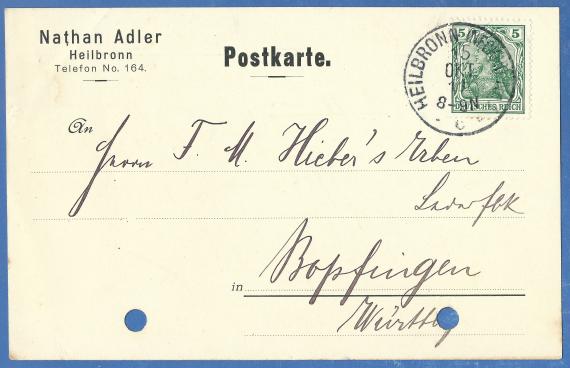 Nathan Adler
Heilbronn
Telefon No. 164.
Postkarte.
5 5
DEUTSCHES REICH
HEILBRONN
5
OKT
11
8-9N
c
An
Herrn F. M. Hieber's Erben
Lederfbk
in Bopfingen
Württbg